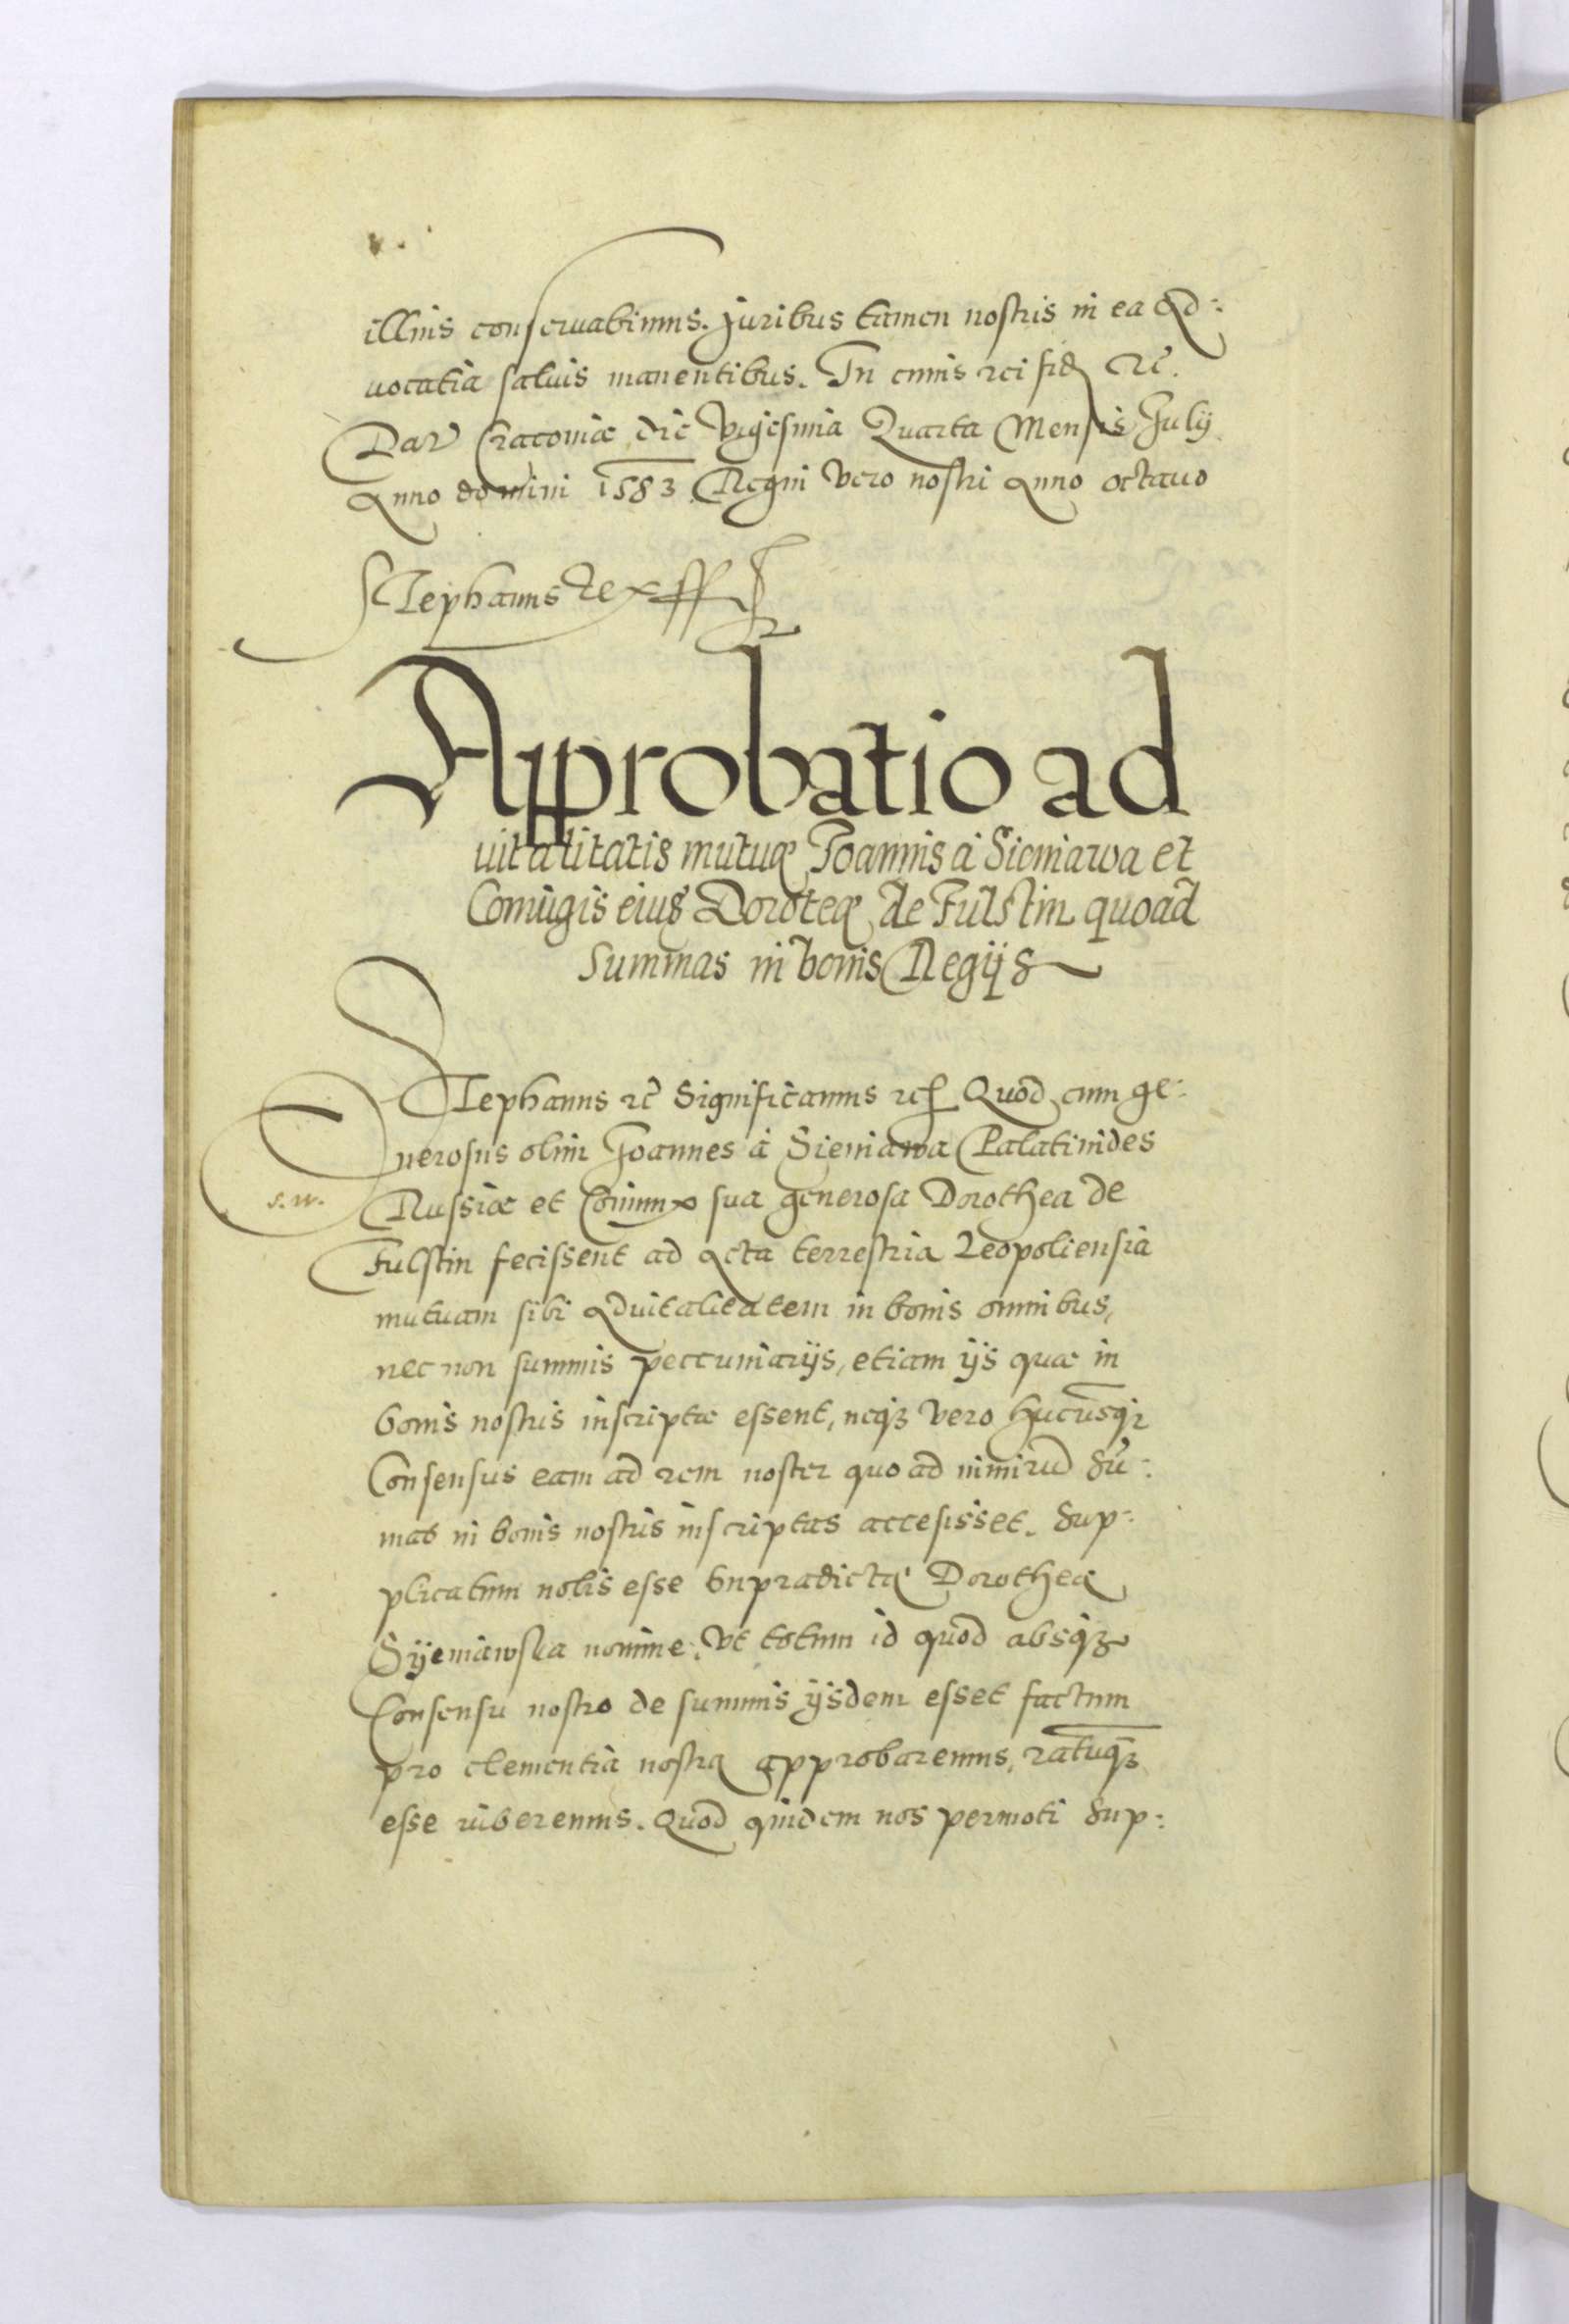 illius conseruabimus. Juribus tamen nostris in ea Ad:
uocatia saluis manentibus. In cuius rei fid etc.
Dat Cracoviæ die Vigesima Quarta Mensis July
Anno domini 1583 Regni Vero nostri Anno octauo
Stephanus Rex ss
Approbatio ad
uitalitatis mutuę Joannis á Sieniawa et
Coniugis eius Doroteę de Fulstin quoad
summas in bonis Regijs
Stephanus etc Significamus etc Quod cum ge:
nerosus olim Joannes á Sieniawa Palatinides
s. w.
Russiæ et Coniunx sua generosa Dorothea de
Fulstin fecissent ad Acta terrestria Leopoliensia
mutuam sibi Aduitalitatem in bonis omnibus,
nec non summis peccuniarijs, etiam ijs quæ in
bonis nostris inscriptæ essent, neqz vero hucusqz
Consensus eam ad rem noster quo ad nimirū sū:
mas in bonis nostris inscriptas accesisset. Sup:
plicatum nobis esse supradictę Dorotheę
Syeniawska nomine. Vt totum id quod absqz
Consensu nostro de summis ijsdem esset factum
pro clementia nostra approbaremus, ratūqz
esse iuberemus. Quod quidem nos permoti sup: